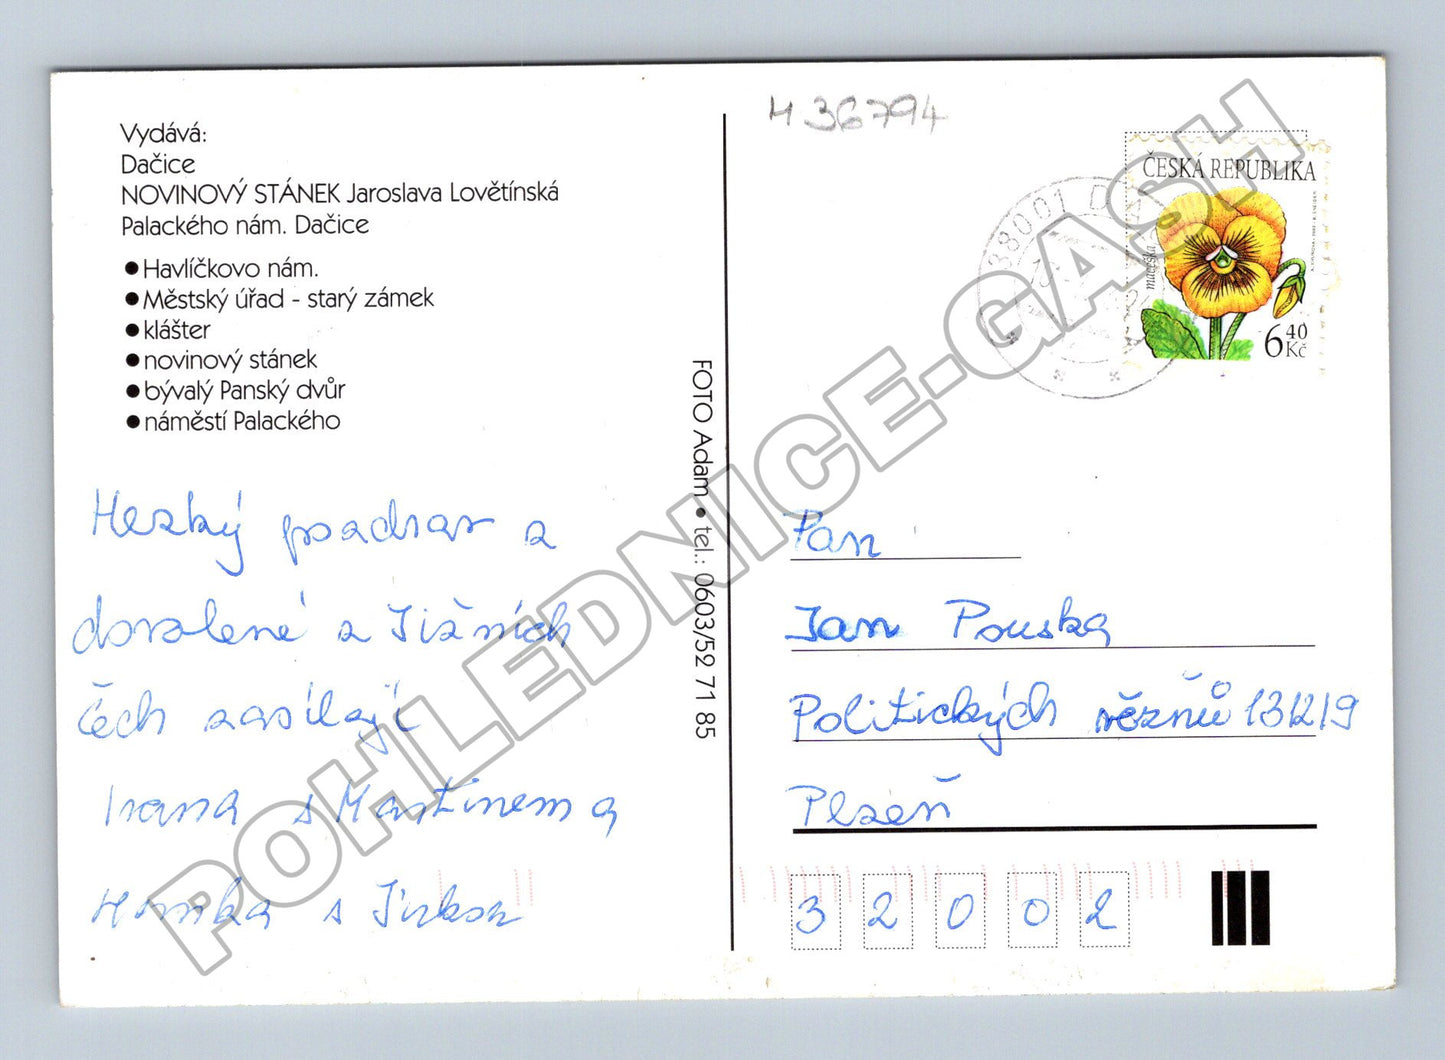 Vydává:
Dačice
NOVINOVÝ STÁNEK Jaroslava Lovětínská
Palackého nám. Dačice
● Havlíčkovo nám.
● Městský úřad - starý zámek
● klášter
● novinový stánek
● bývalý Panský dvůr
● náměstí Palackého
Hezký pozdrav z
dovolené z Jižních
Čech zasílají
Ivana s Martinem a
Honka s Jirkou
FOTO Adam ● tel.: 0603/52 71 85
H 36794
38001
ČESKÁ REPUBLIKA
maceška
6 40 Kč
Pan
Jan Pouska
Politických vězňů 1312/9
Plzeň
32002
POHLEDNICE-GASH